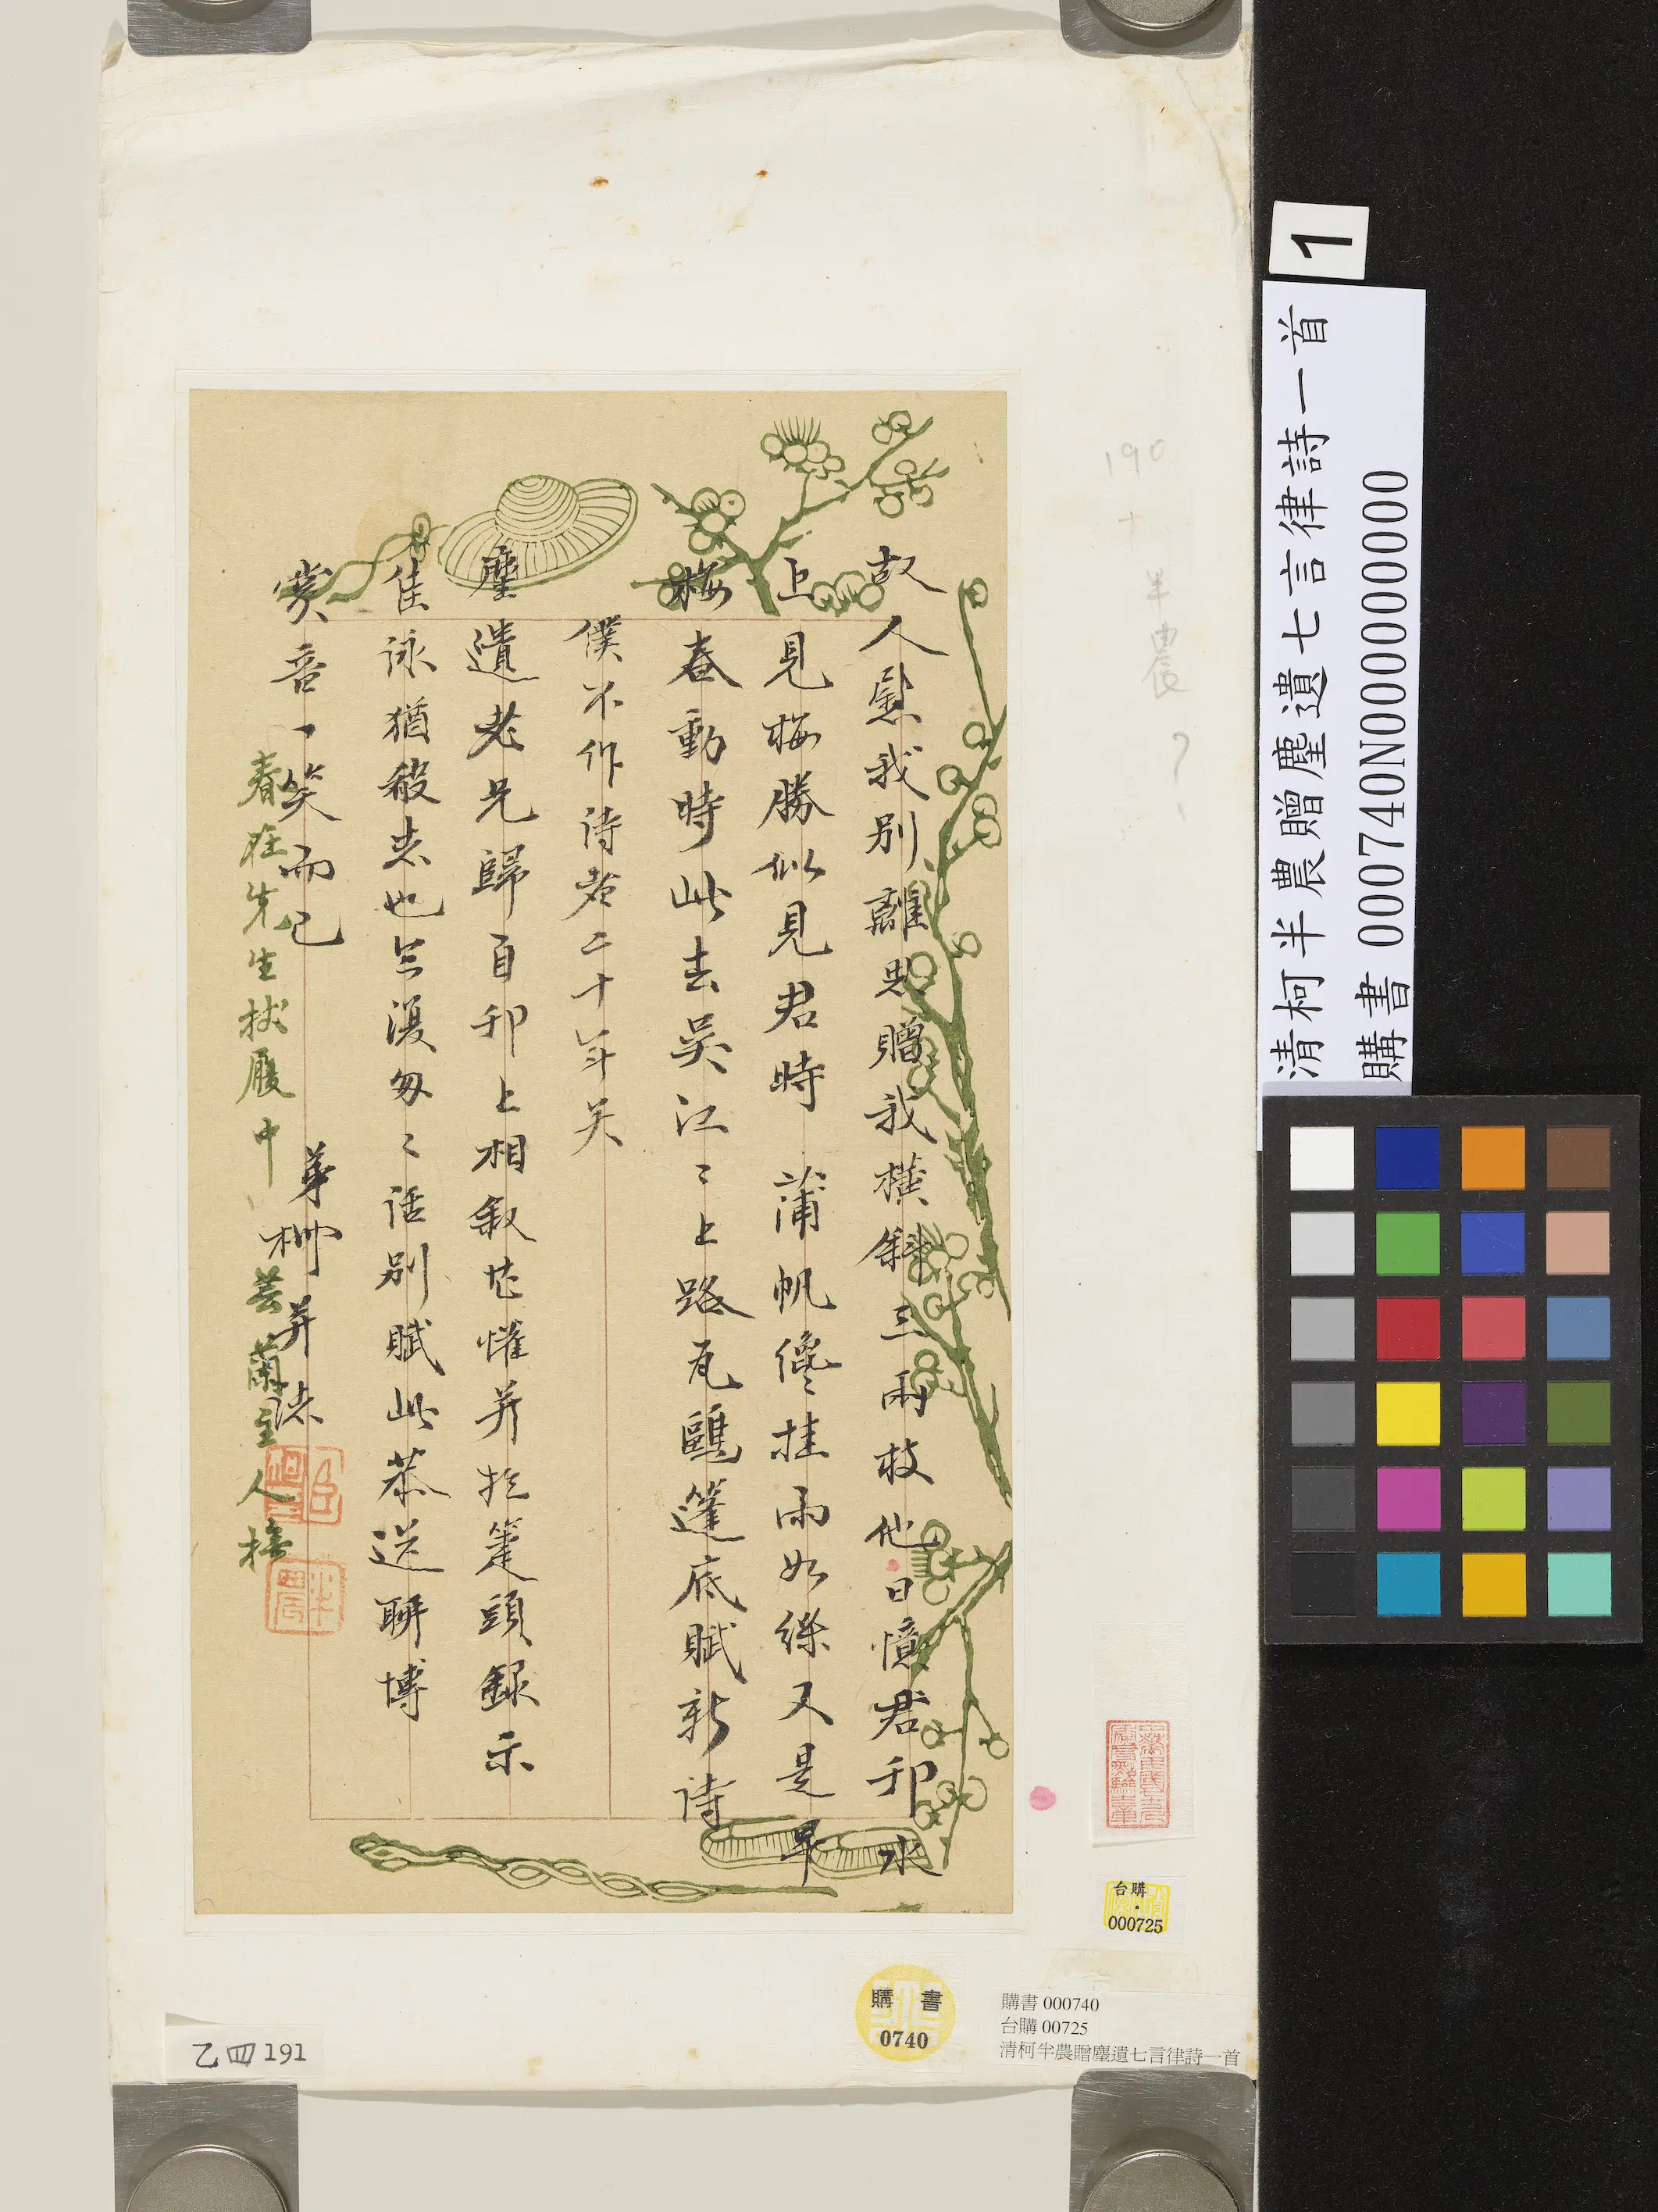 故人慰我別離思贈我橫斜三兩枝他日憶君卯水
上見梅勝似見君時 蒲帆纔挂雨如絲又是早
梅春動時此去吳江〻上路瓦鷗篷底賦新詩
僕不作詩者二十年矣
塵遺老兄歸自卯上相敘甚懽并於箑頭錄示
佳詠猶殺忠也
匆〻話別賦此恭送聊博
賞音一笑而已
弟 并誌
春在先生杖履中 芸蘭主人橅
半農
190
半農?
1
清柯半農贈塵遺七言律詩一首
購書 000740N000000000
台購
000725
購書
0740
購書 000740
台購 00725
清柯半農贈塵遺七言律詩一首
乙四191